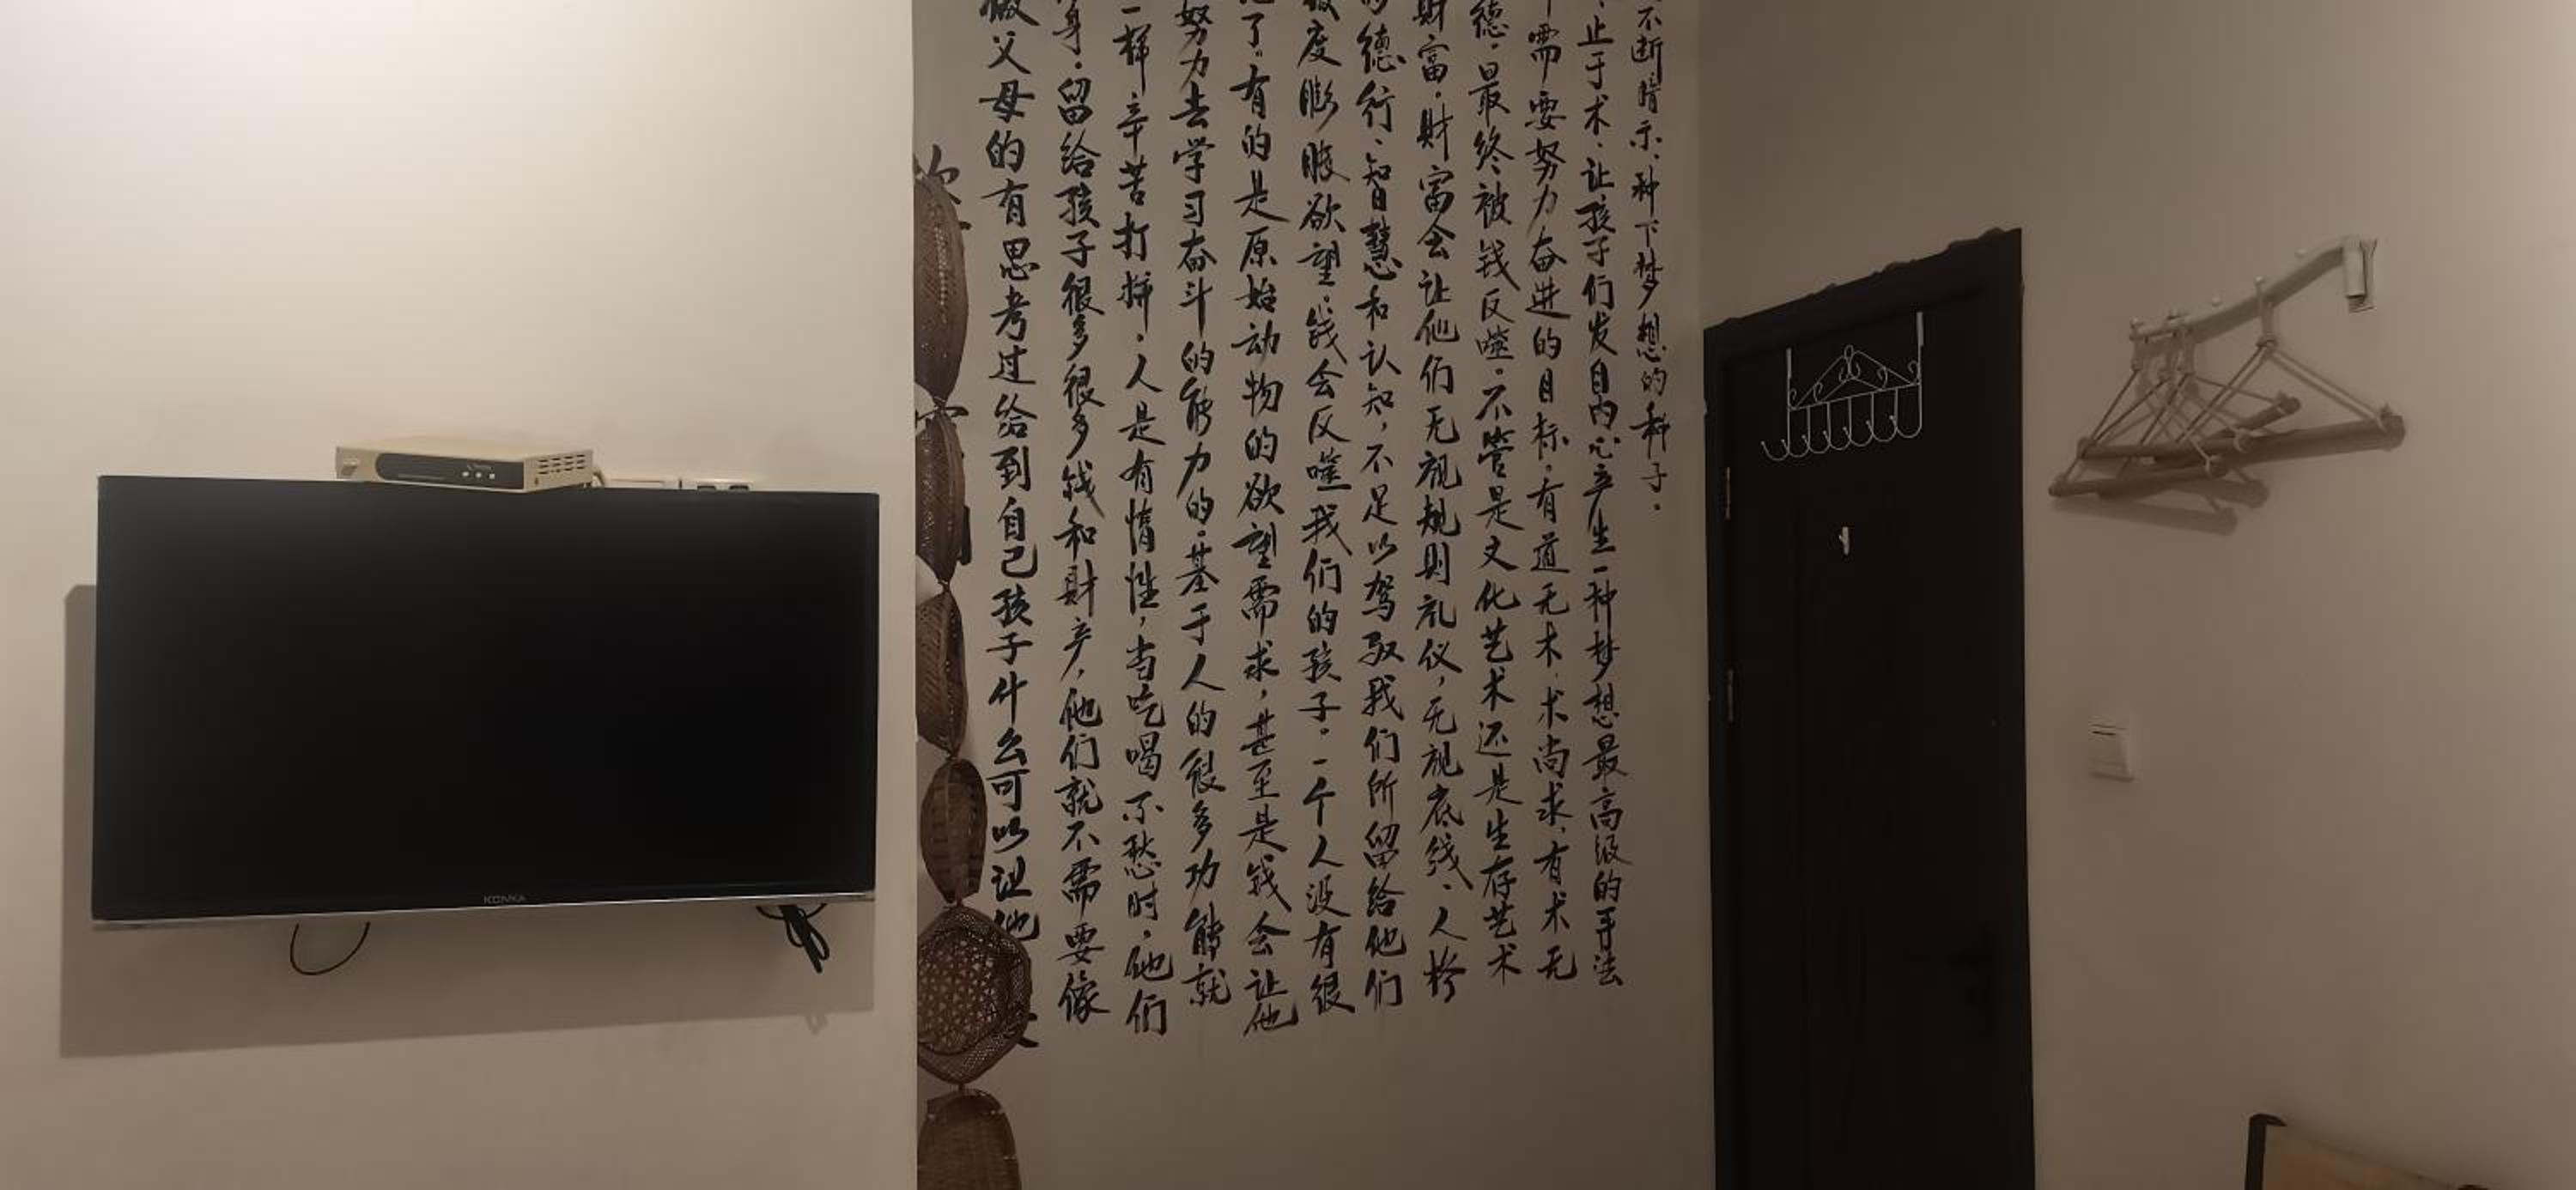 KONKA
做父母的有思考过给到自己孩子什么可以让他
身.留给孩子很多很多钱和财产,他们就不需要像
一样辛苦打拼.人是有惰性,当吃喝不愁时,他们
努力去学习奋斗的能力的.基于人的很多功能就
了.有的是原始动物的欲望需求,甚至是钱会让他
极度膨胀欲望.钱会反噬我们的孩子.一个人没有很
德行、智慧和认知,不足以驾驭我们所留给他们
财富.财富会让他们无视规则礼仪,无视底线.人
德.最终被钱反噬.不管是文化艺术还是生存艺术
需要努力奋进的目标.有道无术.术尚求.有术无
止于术.让孩子们发自内心产生一种梦想最高级的手法
不断暗示,种下梦想的种子.